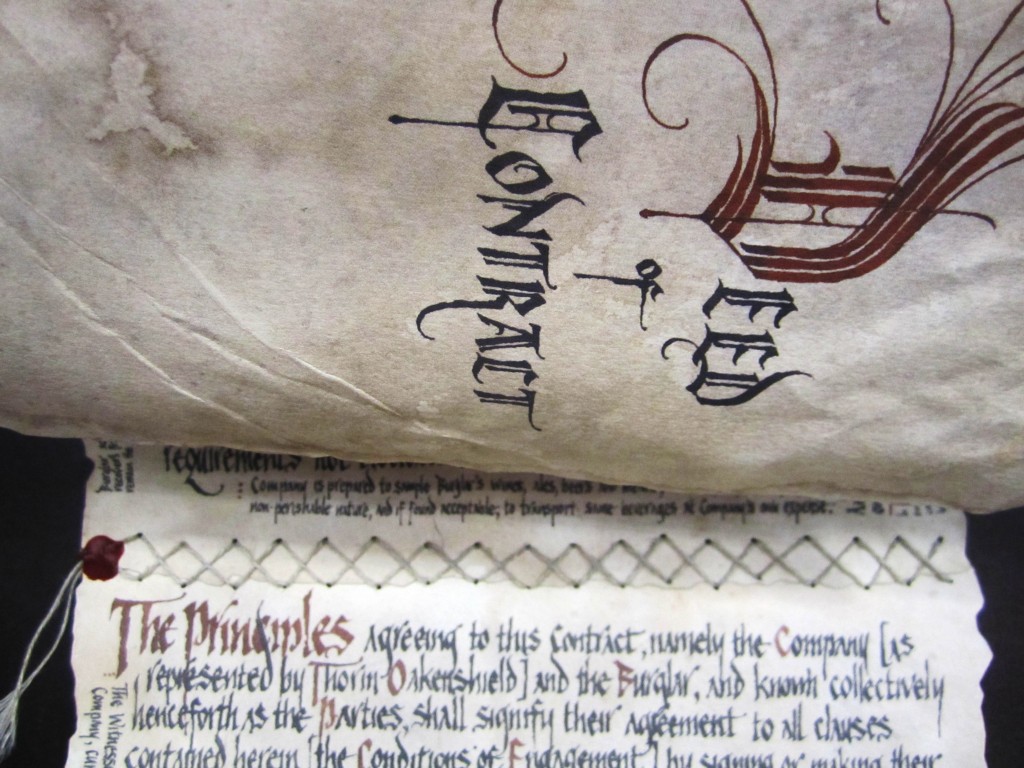 DEED
of
CONTRACT
requirements not
Company is prepared to sample Burglar's wines, ales, beers
non-perishable nature, and if found acceptable, to transport some beverages at Company's own expense.
The Principles agreeing to this Contract, namely the Company [as
represented by Thorin Oakenshield] and the Burglar, and known collectively
henceforth as the Parties, shall signify their agreement to all clauses
contained herein [the Conditions of Engagement] by signing or making their
The Witness
Company,